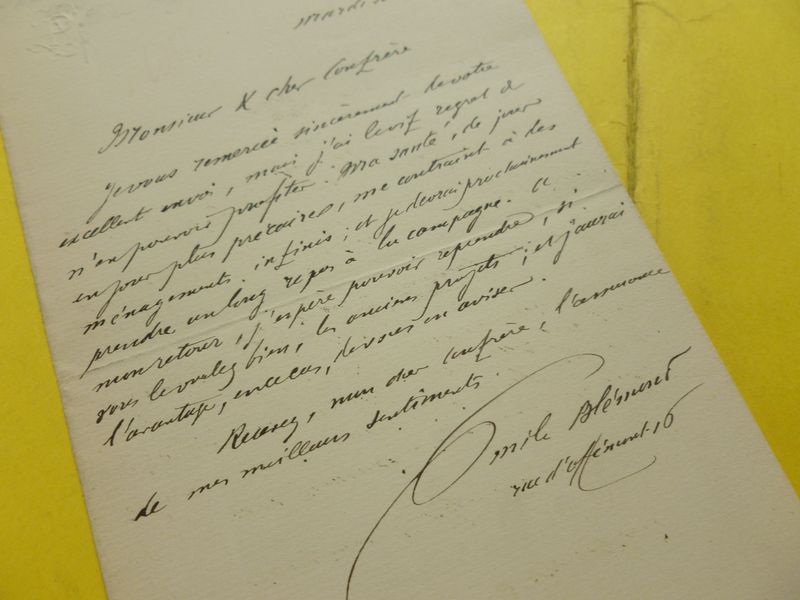 mardi
Monsieur & cher Confrère
Je vous remercie sincèrement de votre
excellent envoi, mais j'ai le vif regret de
n'en pouvoir profiter. Ma santé, de jour
en jour plus précaire, me contraint à des
ménagements infinis; et je devrai prochainement
prendre un long repos à la campagne. A
mon retour, j'espère pouvoir reprendre, si
vous le voulez bien, les anciens projets; et j'aurai
l'avantage, en ce cas, de vous en aviser.
Recevez, mon cher confrère, l'assurance
de mes meilleurs sentiments.
Emile Blémont
rue d'offémont-16